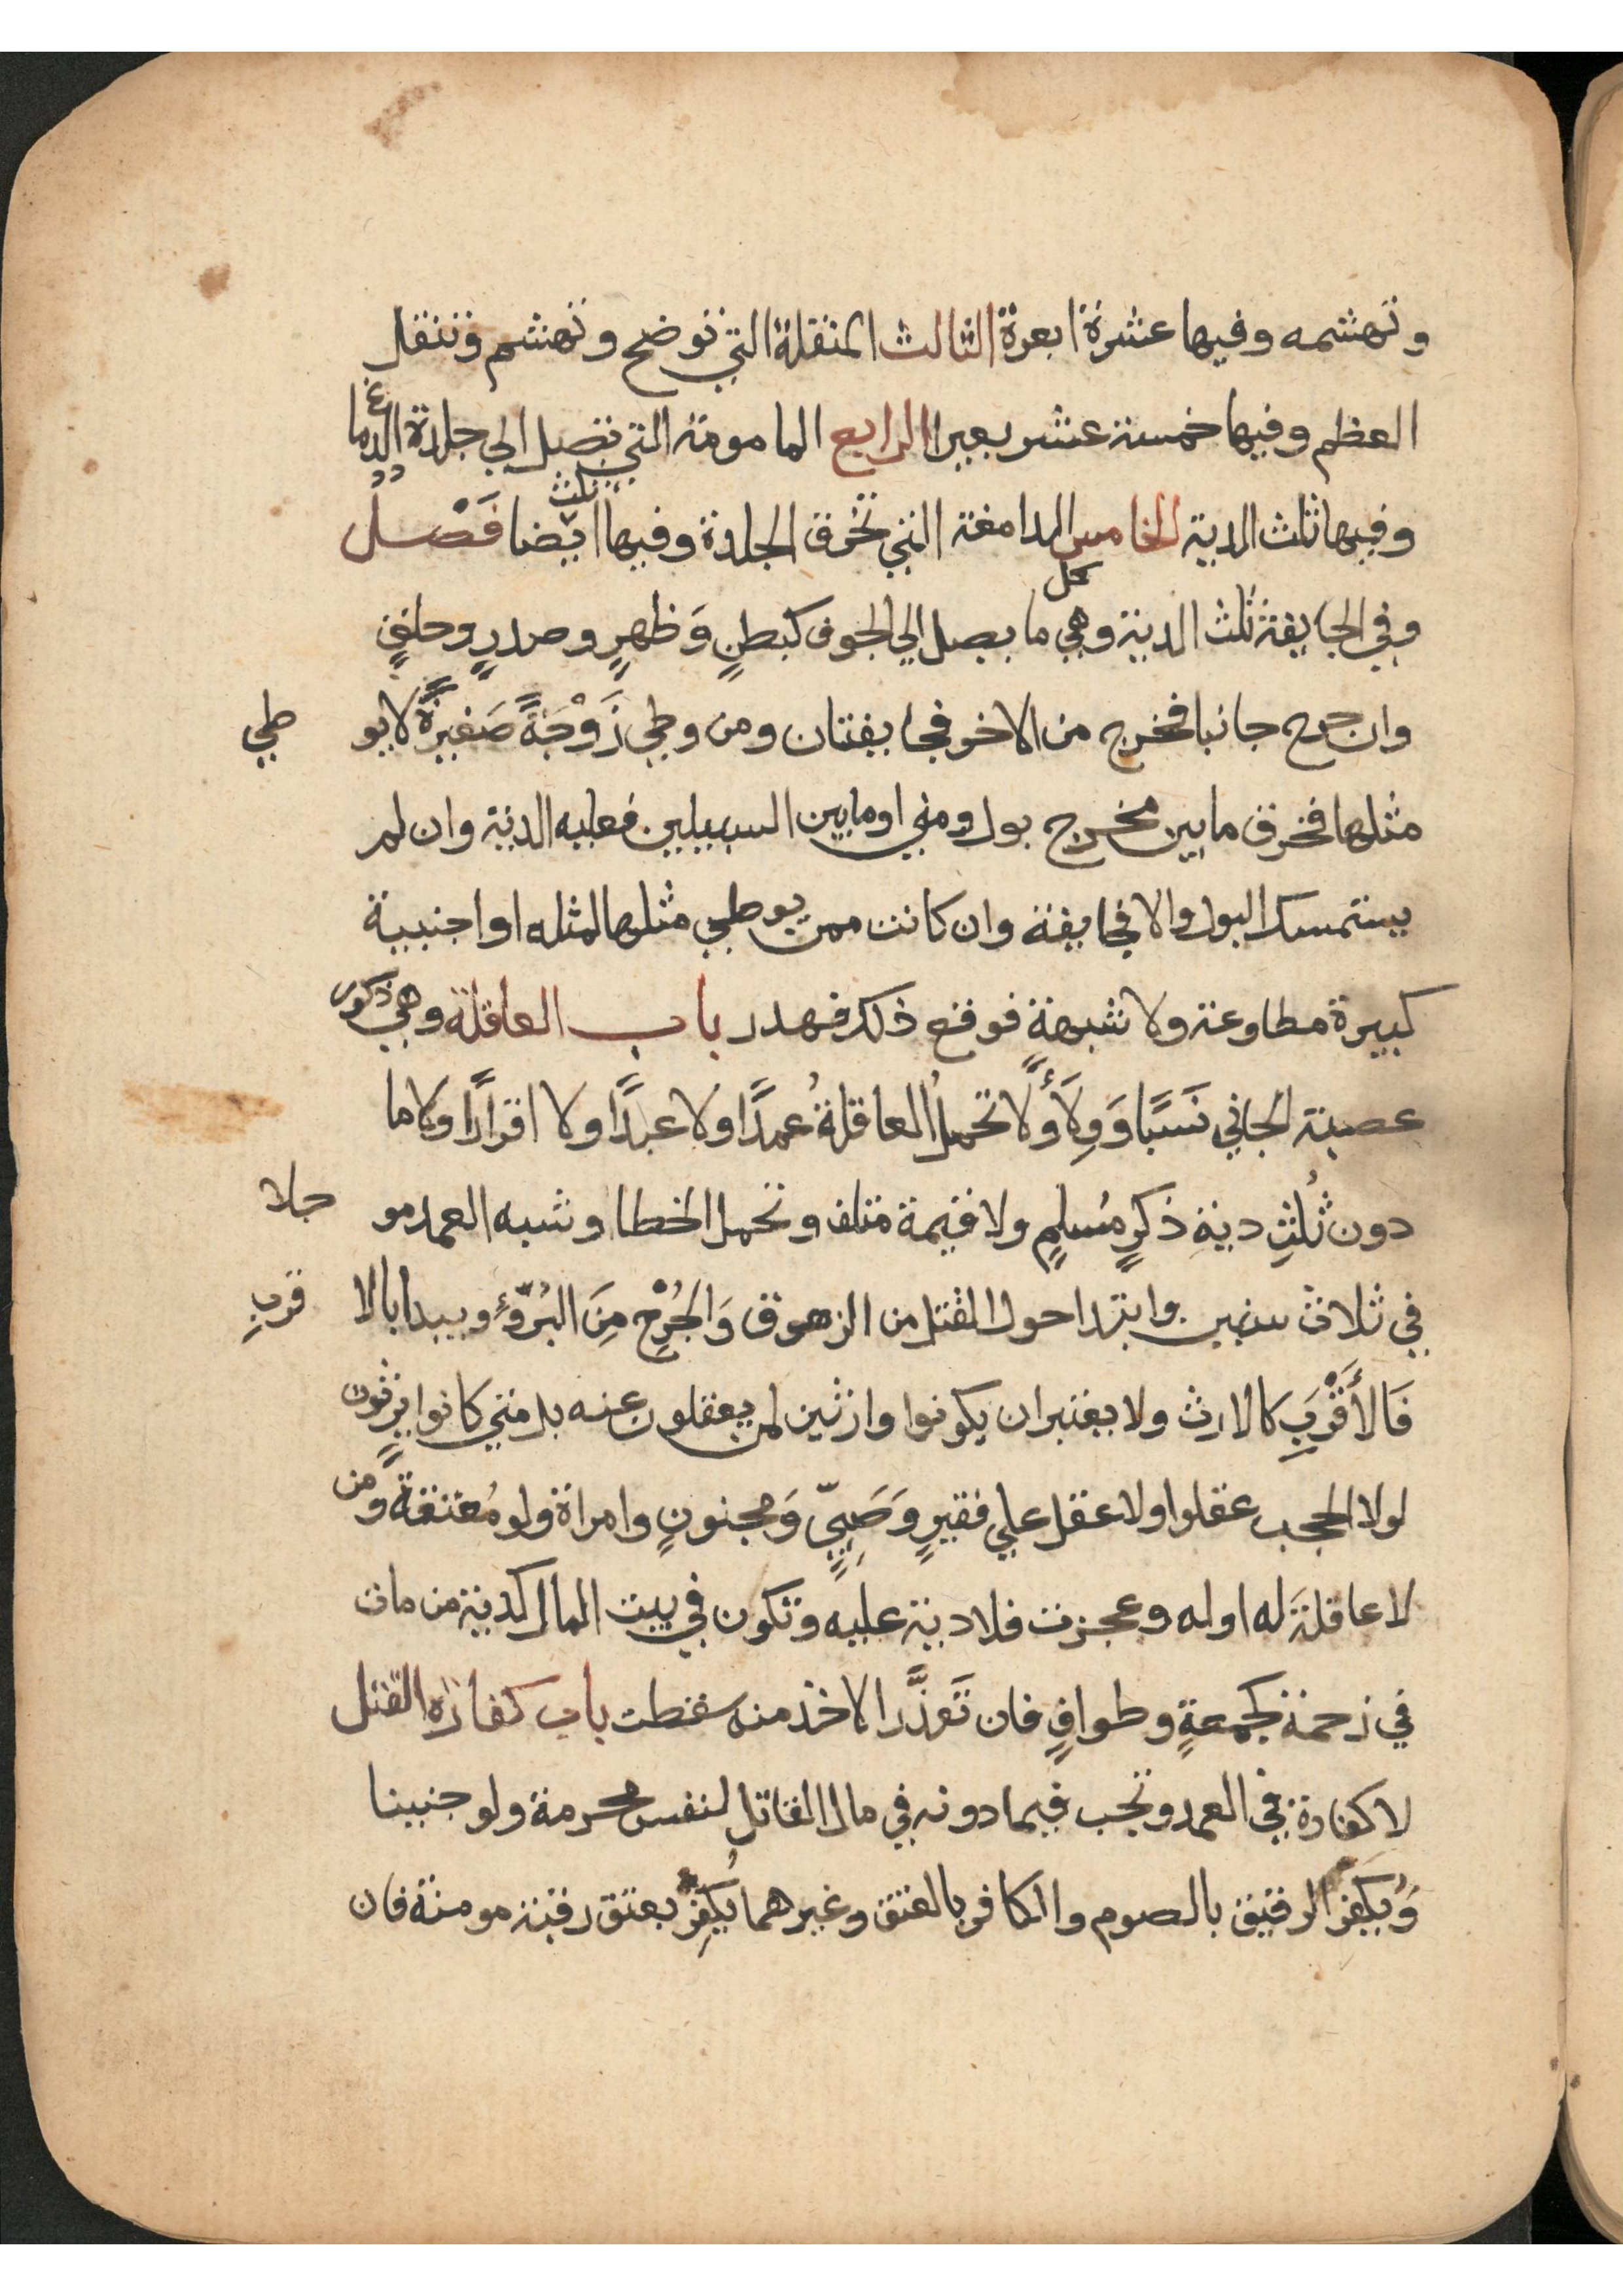 وتهشمه وفيها عشرة ابعرة الثالث المنقلة التي توضح وتهشم وتنقل
العظم وفيها خمسة عشر بعيرا الرابع المامومة التي تصل الي جلدة الدماغ
وفيها ثلث الدية الخامس الدامغة التي تخرق الجلدة وفيها ثلث ايضا فَصْل
وفي الجايفة ثلث الدية وهي كل ما يصل الي الجوف كبطنٍ وَظهرٍ وصدرٍ وحلقٍ
وان جرح جانبا فخرج من الاخر فجايفتان ومن وطي زَوْجَةً صَغيرَةً لا يوطي
مثلها فخرق ما بين مخرج بول ومني او ما بين السبيلين فعليه الدية وان لم
يستمسك البول والا فجايفة وان كانت ممن يوطي مثلها لمثله او اجنبية
كبيرة مطاوعة ولا شبهةٍ فوقع ذلك فهدر باب العاقلة وهي ذكور
عصبة الجاني نَسَبًا وَوِلَاءً ولَا تحملُ العاقلةُ عمدًا ولا عبدًا ولا اقرارًا ولا ما
دون ثُلُثِ ديةِ ذكرٍ مُسلمٍ ولا قيمة متلف وتحمل الخطا وشبه العمد موجلا
في ثلاث سنين وابتدا حول القتل من الزهوق وَالجُرْحِ مِنَ البُرْءِ ويبدا بالاقربِ
فَالأَقْرَبِ كالارث ولا يعتبر ان يكونوا وارثين لمن يعقلون عنه بل متي كانوا يرثون
لولا الحجب عقلوا ولا عقل علي فقيرٍ وَصَبِيٍّ وَمجنونٍ وامراة ولو مُعتقةً ومن
لا عاقلةَ له او له وعجزت فلا دية عليه وتكون في بيت المال كدية من مات
في زحمة كجمعةٍ وطوافٍ فان تَعذَّر الاخذ منه سقطت باب كفارة القتل
لا كفارة في العمد وتجب فيما دونه في مال القاتل لنفس محرمة ولو جنينا
وَيُكفر الرقيق بالصوم والكافر بالعتق وغيرهما يُكَفِّر بعتق رقبة مومنة فان